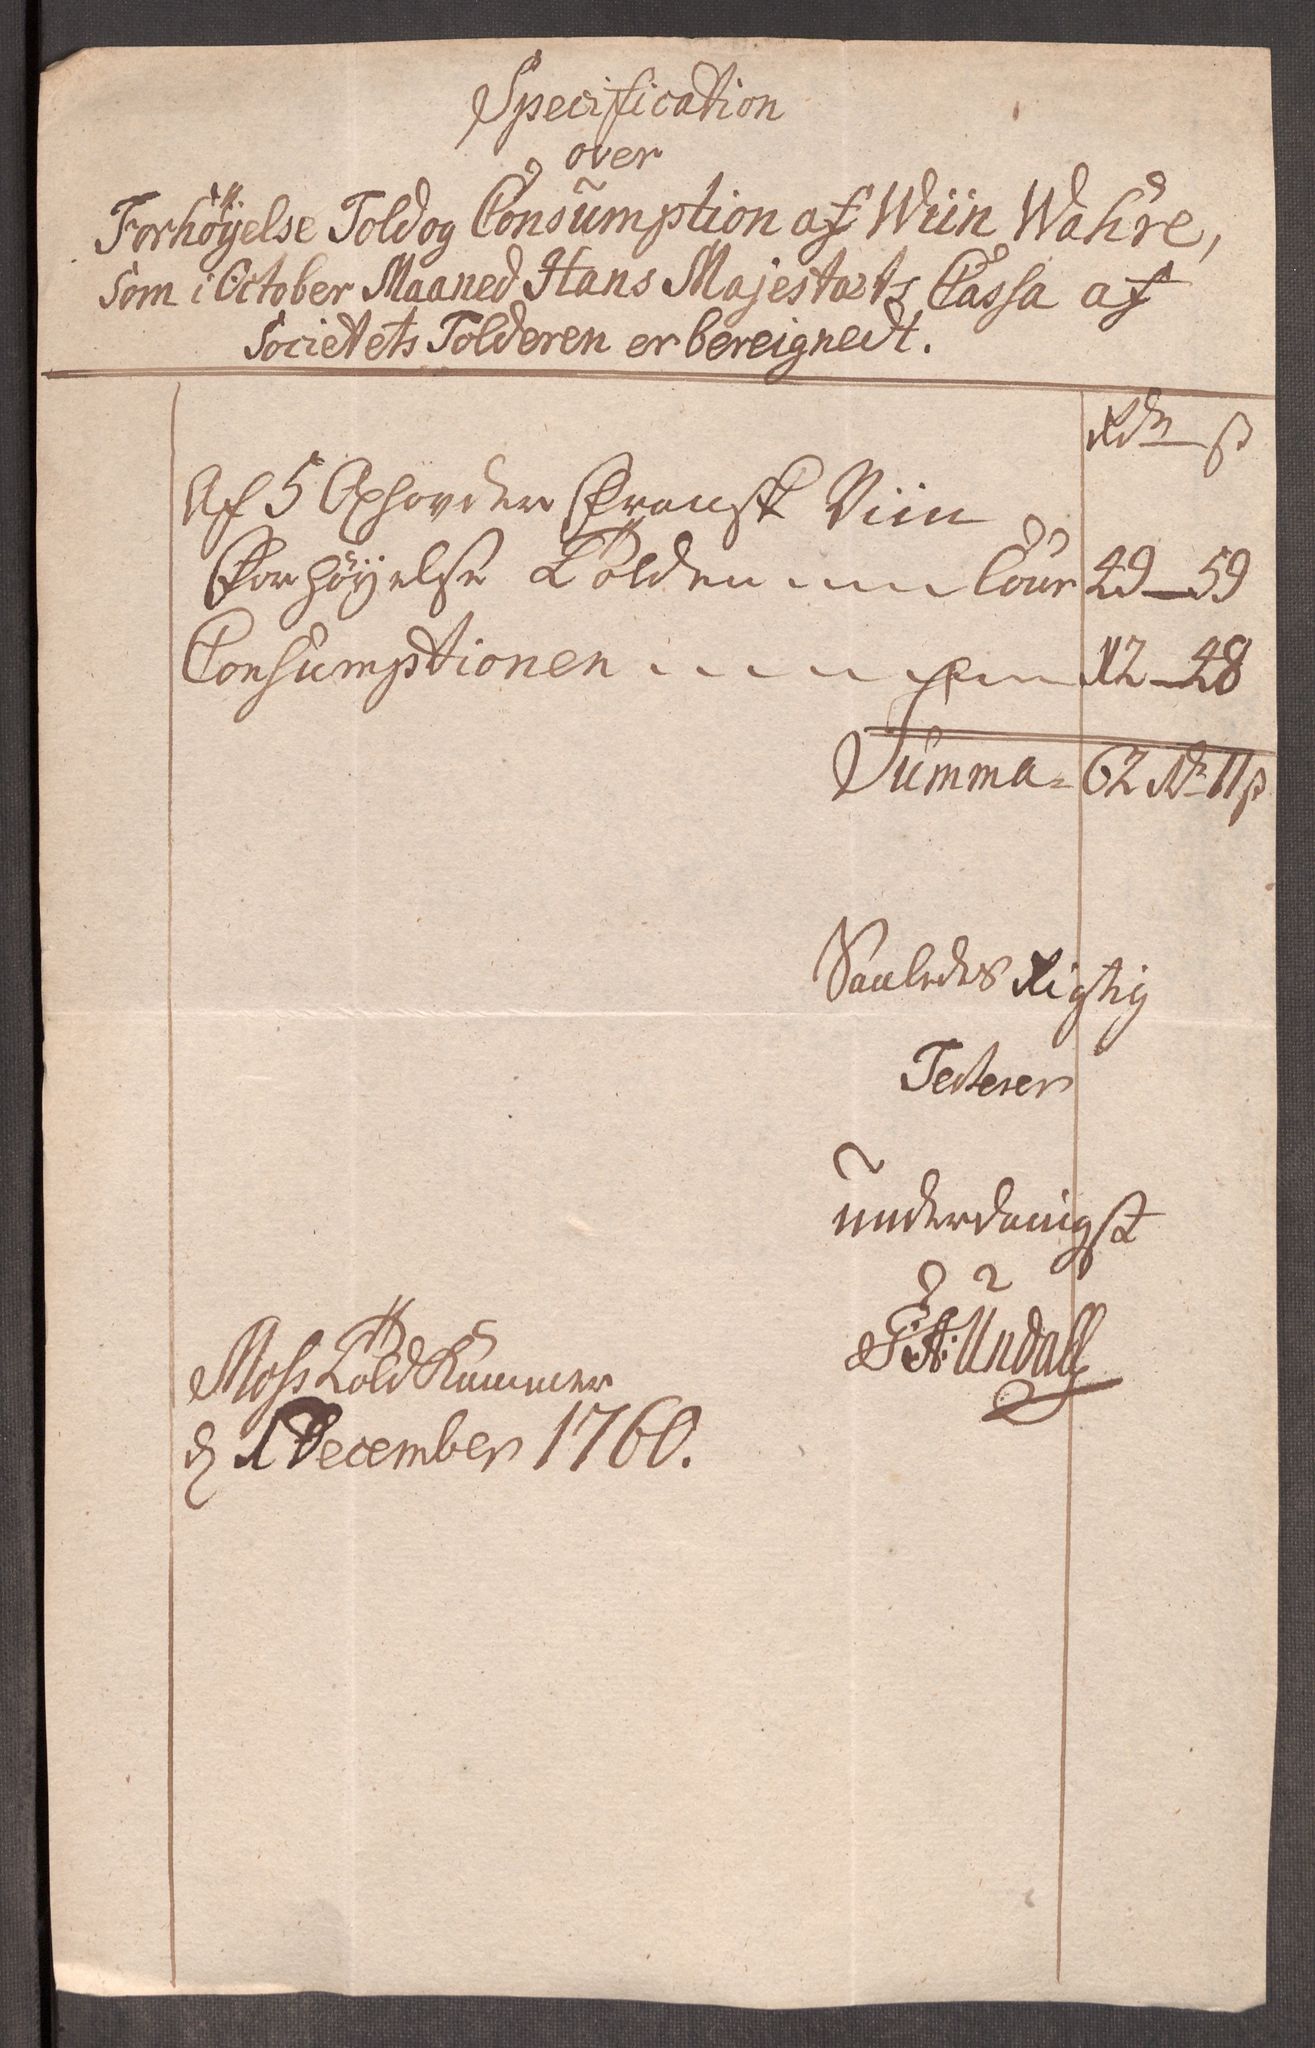 Specification
over
Forhöÿelse Told og Consumption af Wiin Wahre,
som i October Maaned Hans Majestæts Cassa af
Societets Tolderen er bereignedt.
Rdr ß
Af 5 Oxhovder Fransk Viin
Forhöÿelse Tolden Cour 49 59
Consumptionen 12 48
Summa 62 Rdr 11 ß
Saaledes Rigtig
Testerer
underdanigst
Undall
Moss Told Kammer
d 1 December 1760.